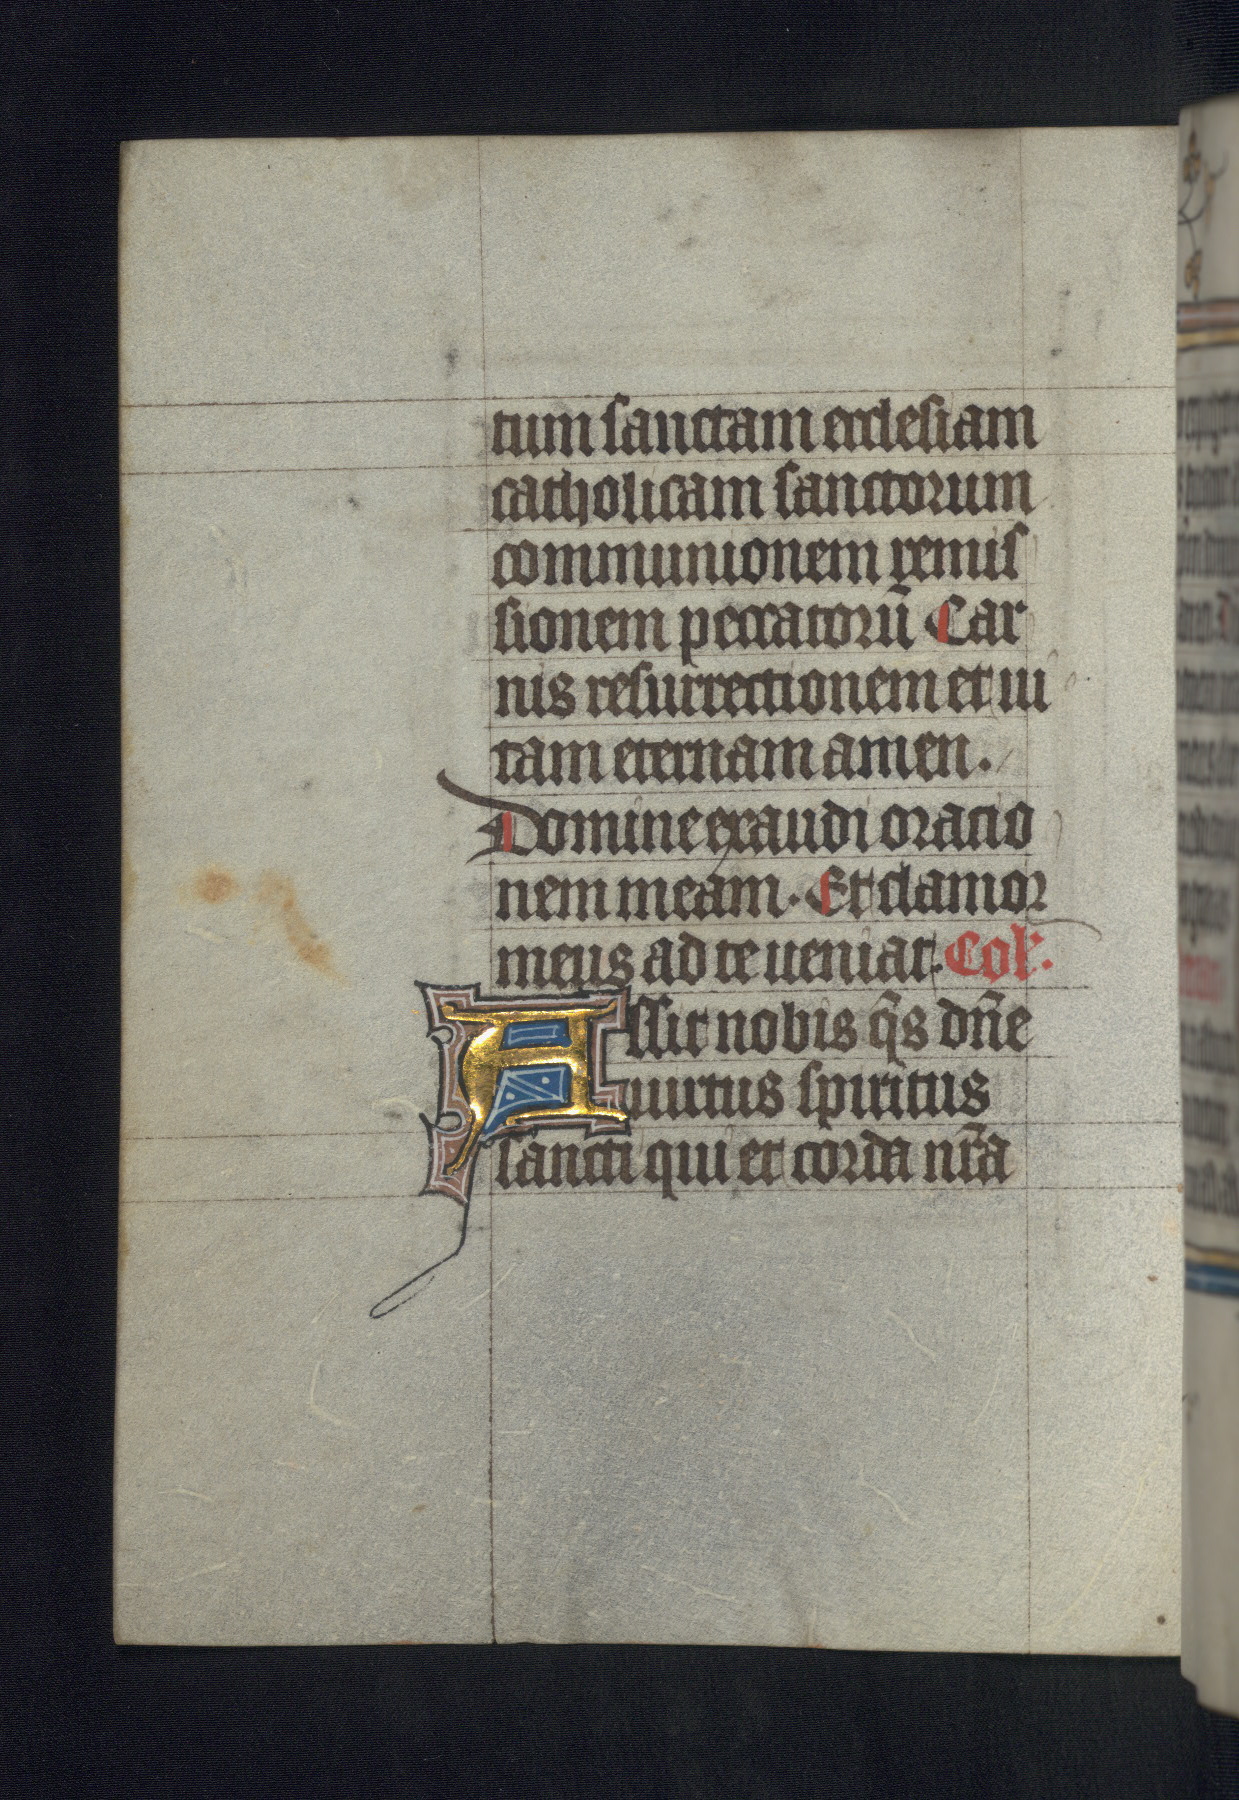 tum sanctam ecclesiam
catholicam sanctorum
communionem remis
sionem peccatorũ Car
nis resurrectionem et ui
tam eternam amen.
Domine exaudi oracio
nem meam. Et clamor
meus ad te ueniat. Coll'.
Assit nobis q̃s dñe
uirtus spiritus
sancti qui et corda nr̃a